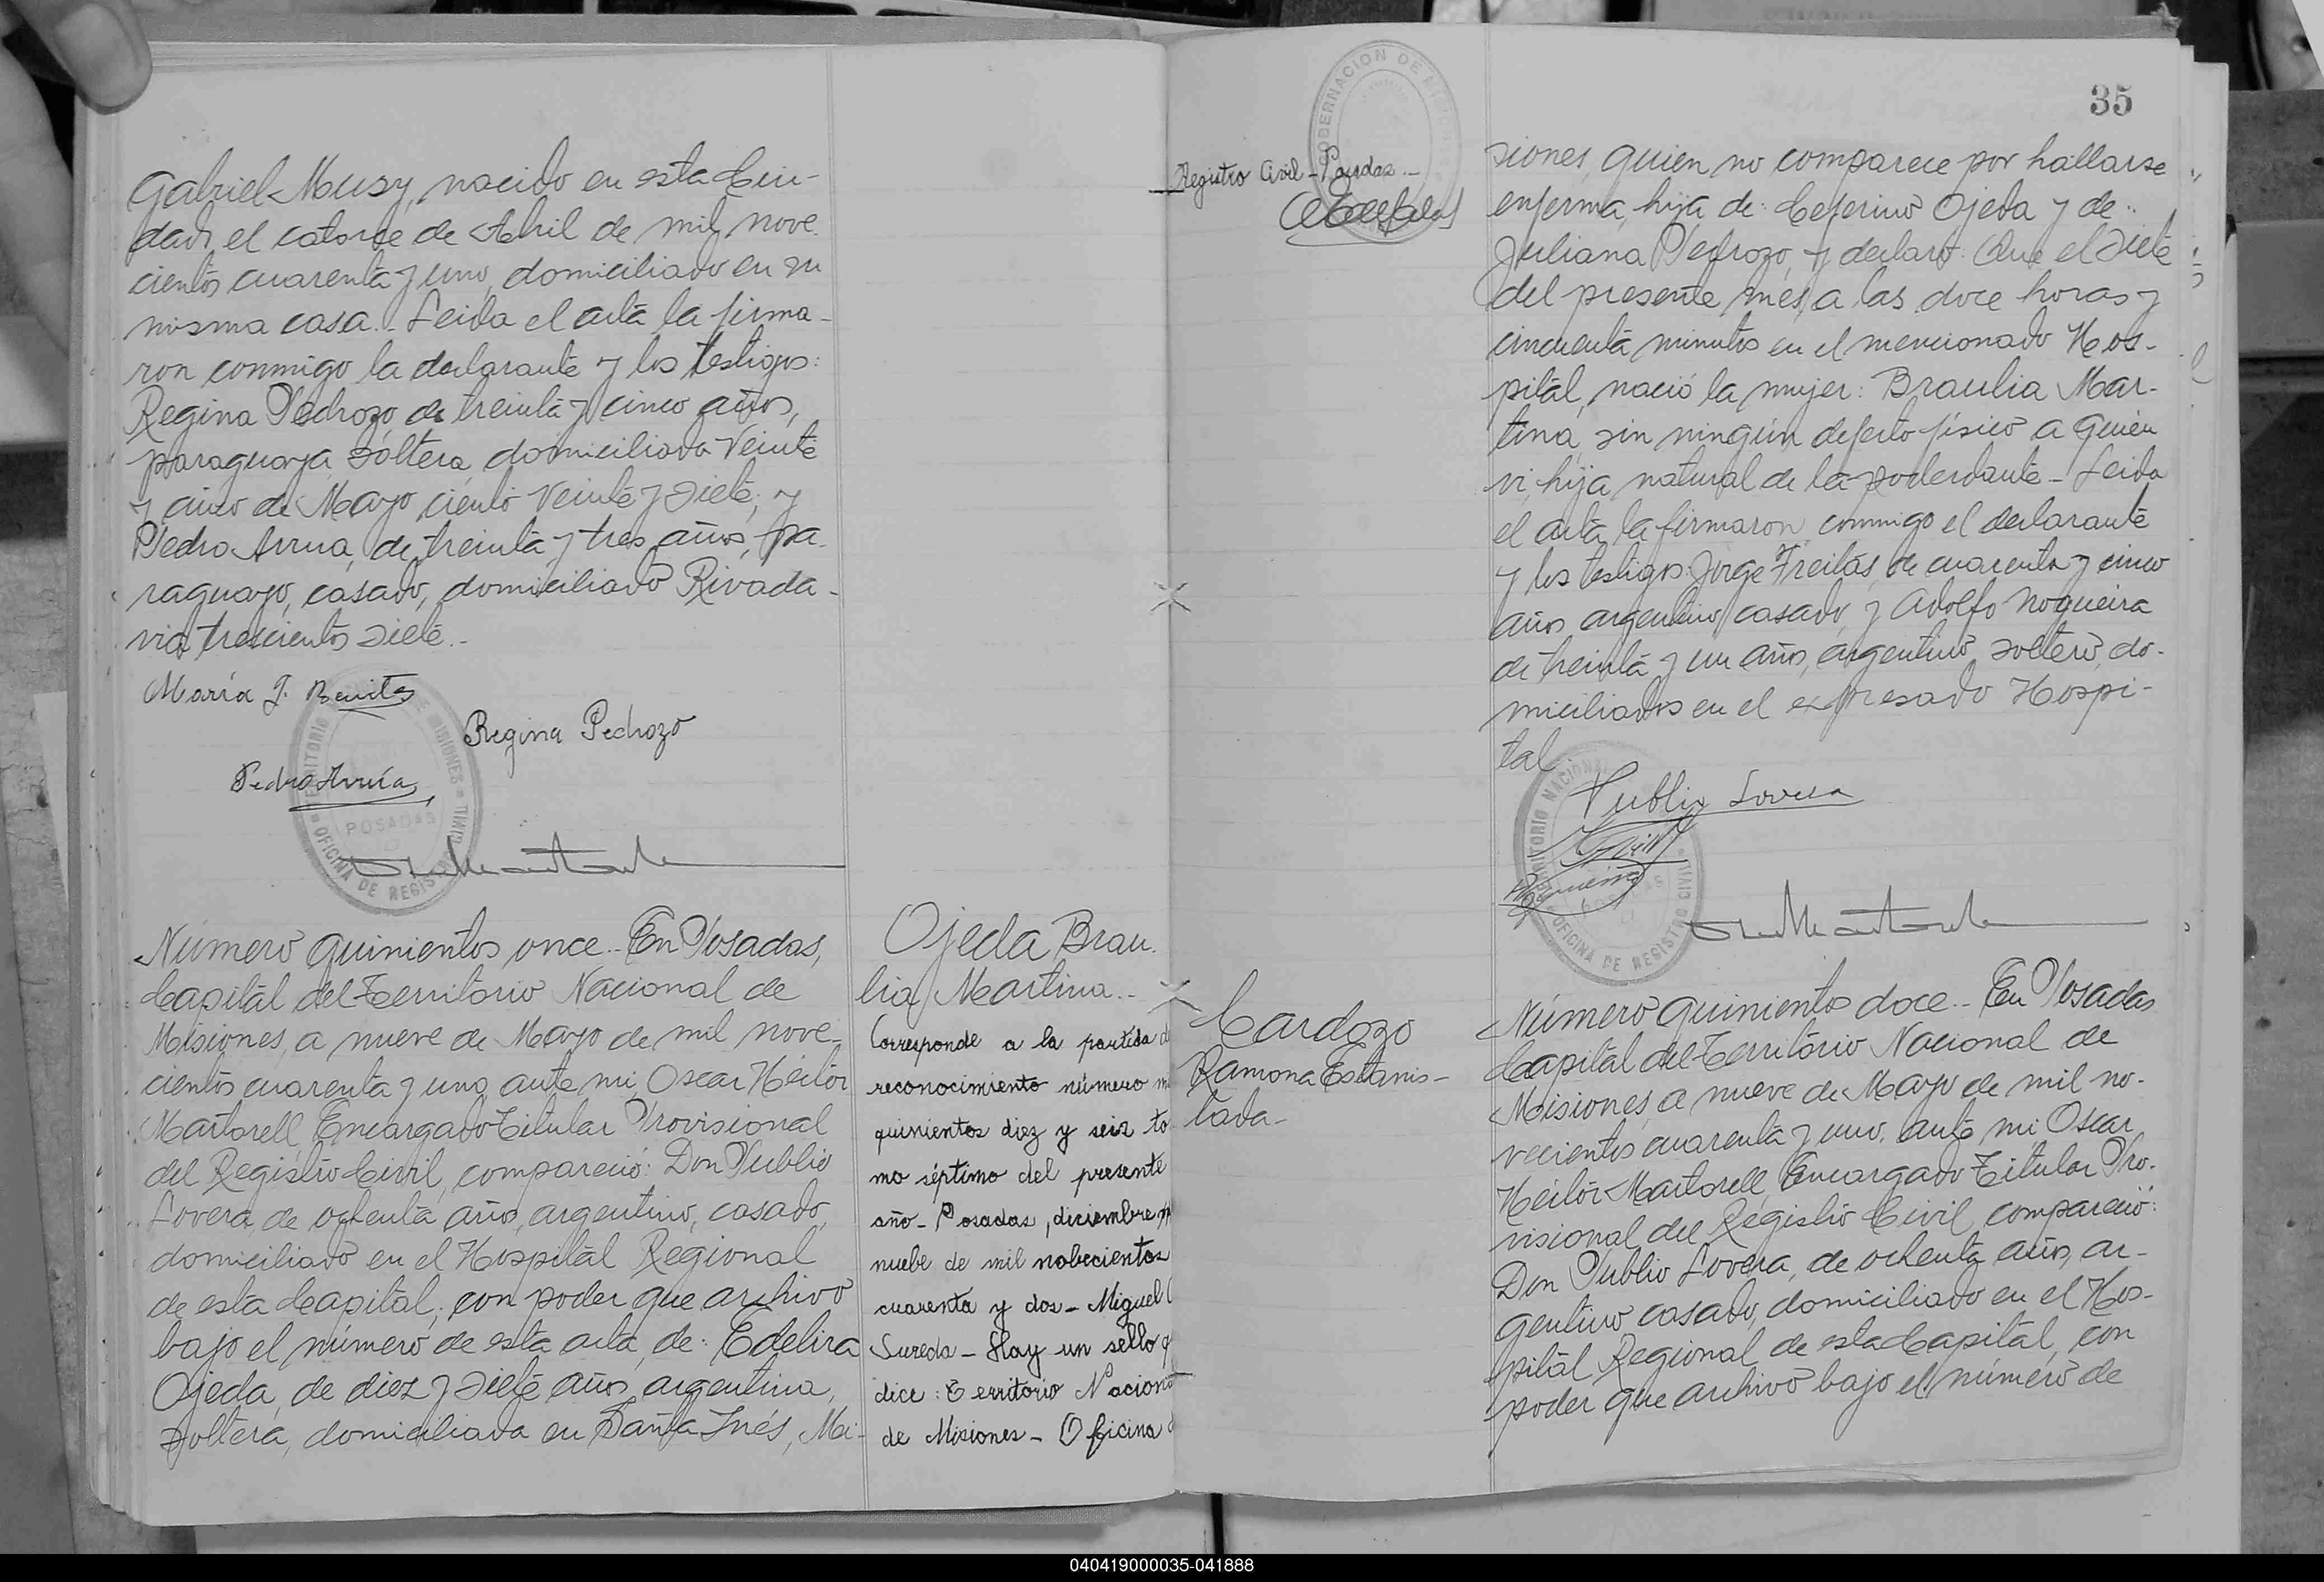 Gabriel Musy, nacido en esta Ciu-
dad, el catorce de Abril de mil nove-
cientos cuarenta y uno, domiciliado en su
misma casa.- Leida el acta la firma-
ron conmigo la declarante y los testigos:
Regina Pedrozo, de treinta y cinco años,
paraguaya, soltera, domiciliada Veinte
y cinco de Mayo ciento veinte y siete; y
Pedro Arrua, de treinta y tres años, pa-
raguayo, casado, domiciliado Rivada-
via trescientos siete.-
María J. Benitez
Regina Pedrozo
Pedro Arrúa
TERRITORIO DE MISIONES
POSADAS
OFICINA DE REGISTRO CIVIL
Número quinientos once.- En Posadas,
Capital del Territorio Nacional de
Misiones, a nueve de Mayo de mil nove-
cientos cuarenta y uno, ante mi Oscar Héctor
Martorell, Encargado Titular Provisional
del Registro Civil, compareció: Don Publio
Lovera, de ochenta años, argentino, casado,
domiciliado en el Hospital Regional
de esta Capital, con poder que archivo
bajo el número de esta acta, de: Edelira
Ojeda, de diez y siete años, argentina,
soltera, domiciliada en Santa Inés, Mi-
Ojeda Brau-
lia Martina.-
Corresponde a la partida d
reconocimiento número m
quinientos diez y seis to
mo séptimo del presente
año - Posadas, diciembre
nuebe de mil nobecientos
cuarenta y dos - Miguel
Sureda - Hay un sello q
dice: Territorio Naciona
de Misiones - Oficina d
GOBERNACION DE
Registro Civil - Posadas -
Cardozo
Ramona Estanis-
lada -
35
siones, quien no comparece por hallarse
enferma, hija de: Ceferino Ojeda y de:
Juliana Pedrozo, y declaró: Que el siete
del presente mes, a las doce horas y
cincuenta minutos en el mencionado Hos-
pital, nació la mujer: Braulia Mar-
tina, sin ningún defecto físico a quien
vi, hija natural de la poderdante - Leida
el acta la firmaron conmigo el declarante
y los testigos: Jorge Freitas, de cuarenta y cinco
años, argentino, casado, y Adolfo Nogueira
de treinta y un años, argentino, soltero, do-
miciliados en el expresado Hospi-
tal.
Publio Lovera
TERRITORIO NACIONAL
OFICINA DE REGISTRO CIVIL
Número quinientos doce.- En Posadas
Capital del Territorio Nacional de
Misiones, a nueve de Mayo de mil no-
vecientos cuarenta y uno, ante mi, Oscar
Héctor Martorell, Encargado Titular Pro-
visional del Registro Civil, compareció:
Don Publio Lovera, de ochenta años, ar-
gentino, casado, domiciliado en el Hos-
pital Regional de esta Capital, con
poder que archivo bajo el número de
040419000035-041888